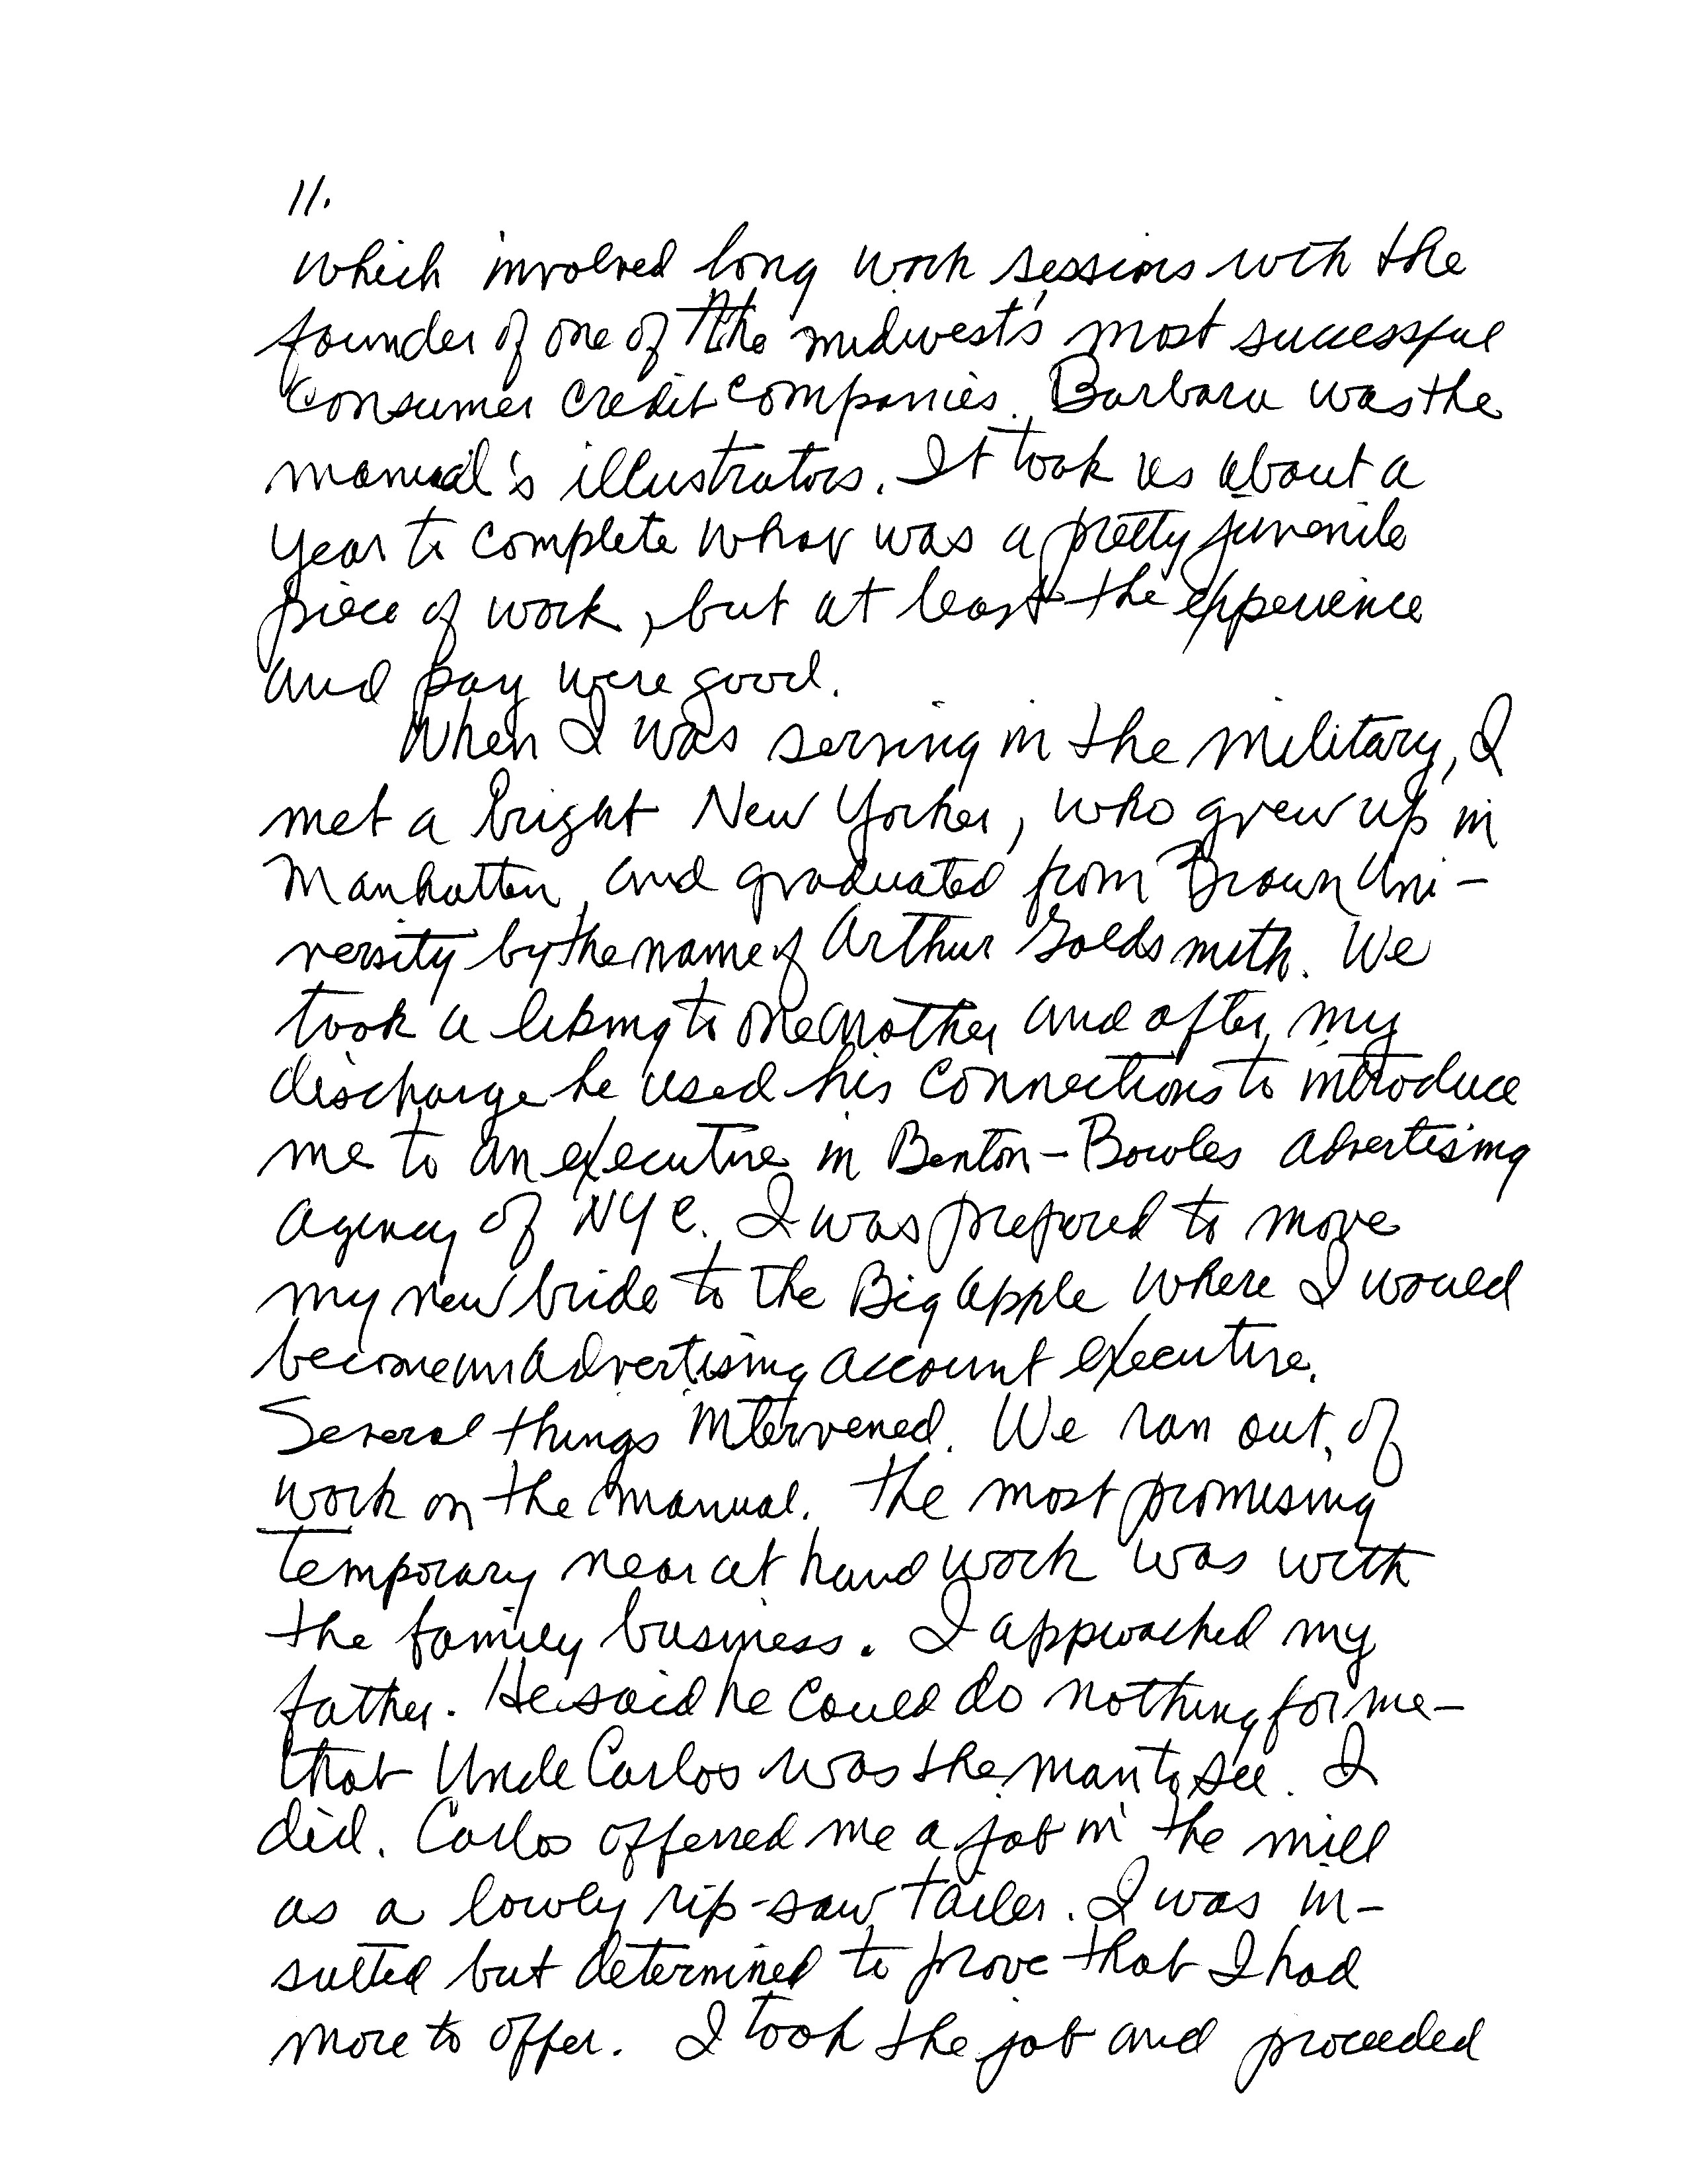 11.
which involved long work sessions with the
founder of one of the midwest's most successful
consumer credit companies. Barbara was the
manual's illustrators. It took us about a
year to complete what was a pretty juvenile
piece of work, but at least the experience
and pay were good.
When I was serving in the military, I
met a bright New Yorker, who grew up in
Manhattan, and graduated from Brown Uni-
versity by the name of Arthur Goldsmith. We
took a liking to one another and after my
discharge he used his connections to introduce
me to an executive in Benton-Bowles advertising
agency of NYC. I was prepared to move
my new bride to the Big Apple where I would
become an advertising account executive.
Several things intervened. We ran out of
work on the manual. The most promising
temporary near at hand work was with
the family business. I approached my
father. He said he could do nothing for me-
that Uncle Carlos was the man to see. I
did. Carlos offerred me a job in the mill
as a lowly rip-saw tailer. I was in-
sulted but determined to prove that I had
more to offer. I took the job and proceeded